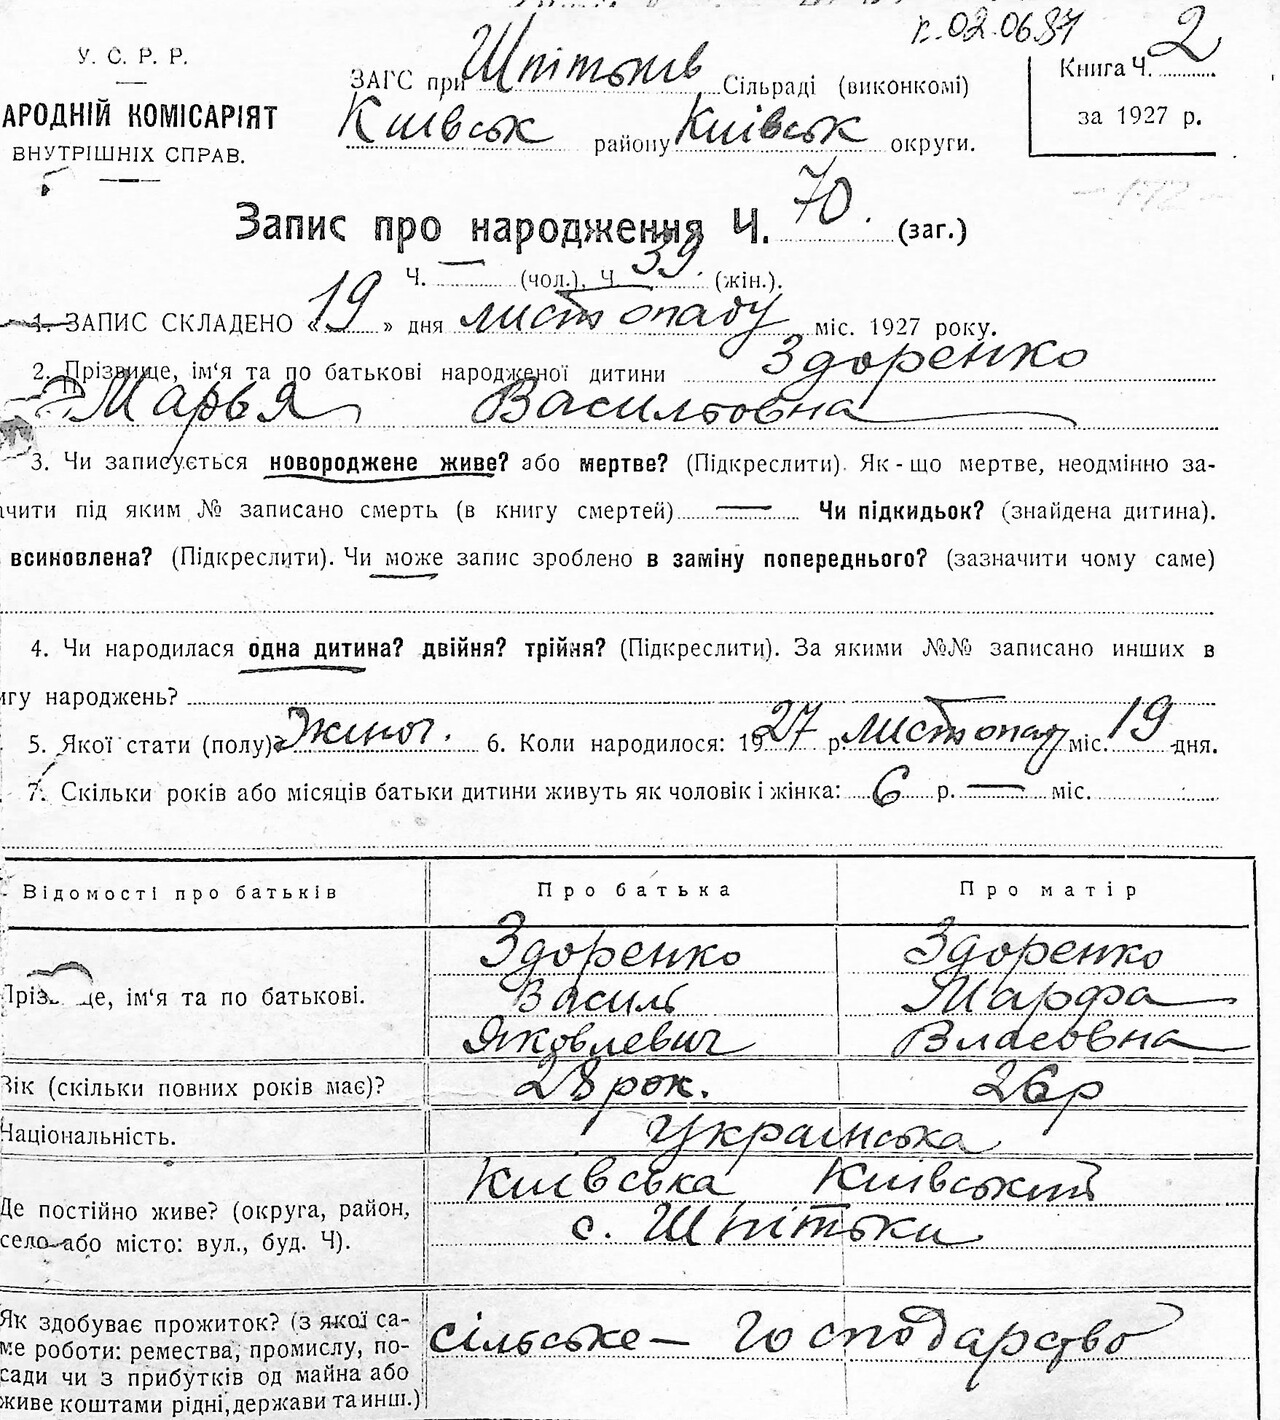 г. 02.06.87
У. С. Р. Р.
АРОДНІЙ КОМІСАРІЯТ
ВНУТРІШНІХ СПРАВ.
ЗАГС при Шпітьків Сільраді (виконкомі)
Київськ району Київськ округи.
Книга Ч. 2
за 1927 р.
- 172 -
Запис про народження Ч. 70. (заг.)
Ч. — (чол.), Ч 39 (жін.).
1. ЗАПИС СКЛАДЕНО « 19 » дня листопаду міс. 1927 року.
2. Прізвище, ім‘я та по батькові народженої дитини Здоренко
Марья Васильовна
3. Чи записується новороджене живе? або мертве? (Підкреслити). Як-що мертве, неодмінно за-
ачити під яким № записано смерть (в книгу смертей) — Чи підкидьок? (знайдена дитина).
всиновлена? (Підкреслити). Чи може запис зроблено в заміну попереднього? (зазначити чому саме)
4. Чи народилася одна дитина? двійня? трійня? (Підкреслити). За якими №№ записано инших в
игу народжень?
5. Якої стати (полу)? Жіноч. 6. Коли народилося: 1927 р. листопаду міс. 19 дня.
7. Скільки років або місяців батьки дитини живуть як чоловік і жінка: 6 р. — міс.
Відомості про батьків Про батька Про матір
Прізвище, ім‘я та по батькові.
Здоренко Здоренко
Василь Марфа
Яковлевич Власовна
Вік (скільки повних років має)? 28 рок. 26 р
Національність. Українська
Де постійно живе? (округа, район,
село або місто: вул., буд. Ч).
Київська Київський
с. Шпітьки
Як здобуває прожиток? (з якої са-
ме роботи: ремества, промислу, по-
сади чи з прибутків од майна або
живе коштами рідні, держави та инш.)
сільське — господарство